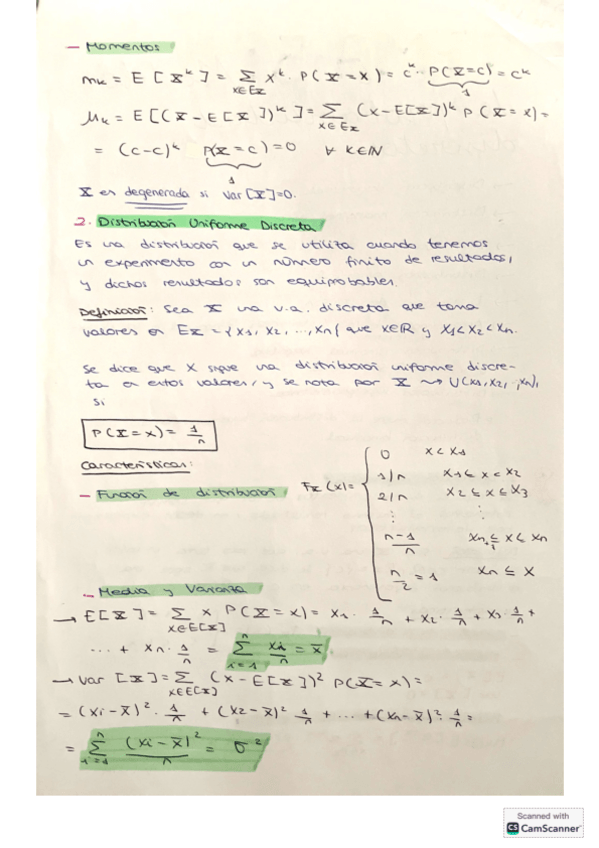 - Momentos
mₖ = E[X^k] = Σ_{x∈Ex} x^k · P(X=x) = c^k · P(X=c) = c^k
1
μₖ = E[(X - E[X])^k] = Σ_{x∈Ex} (x - E[X])^k P(X=x) =
= (c-c)^k P(X=c) = 0 ∀ k∈ℕ
1
X es degenerada si Var[X]=0.
2. Distribución Uniforme Discreta
Es una distribución que se utiliza cuando tenemos
un experimento con un número finito de resultados,
y dichos resultados son equiprobables.
Definición: Sea X una v.a. discreta que toma
valores en Ex = {x1, x2, ..., xn{ que x∈R y x1<x2<xn.
Se dice que X sigue una distribución uniforme discre-
ta en estos valores, y se nota por X ⇝ U(x1, x2, ..., xn),
si
P(X=x) = 1/n
Características:
- Función de distribución
Fx(x) =
0 x < x1
1/n x1 ≤ x < x2
2/n x2 ≤ x ≤ x3
⋮ ⋮
n-1/n xn-1 ≤ x ≤ xn
n/2 = 1 xn ≤ x
- Media y Varianza
→ E[X] = Σ_{x∈E[x]} x P(X=x) = x1 · 1/n + x2 · 1/n + x3 · 1/n +
... + xn · 1/n = Σ_{i=1}^{n} xi/n = x̄
→ Var[X] = Σ_{x∈E[x]} (x - E[X])² P(X=x) =
= (xi - x̄)² · 1/n + (x2 - x̄)² 1/n + ... + (xn - x̄)² · 1/n =
= Σ_{i=1}^{n} (xi - x̄)²/n = σ²
Scanned with
CS CamScanner